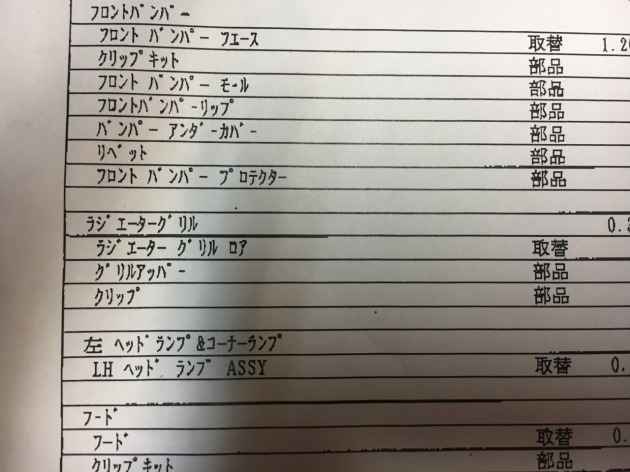 フロントバンパー
フロント バンパー フエース 取替 1.2
クリップキット 部品
フロント バンパー モール 部品
フロントバンパーリップ 部品
バンパー アンダーカバー 部品
リベット 部品
フロント バンパー プロテクター 部品
ラジエーターグリル 0.
ラジエーター グリル ロア 取替
グリルアッパー 部品
クリップ 部品
左 ヘッドランプ&コーナーランプ
LH ヘッド ランプ ASSY 取替 0.
フード
フード 取替 0.
クリップキット 部品